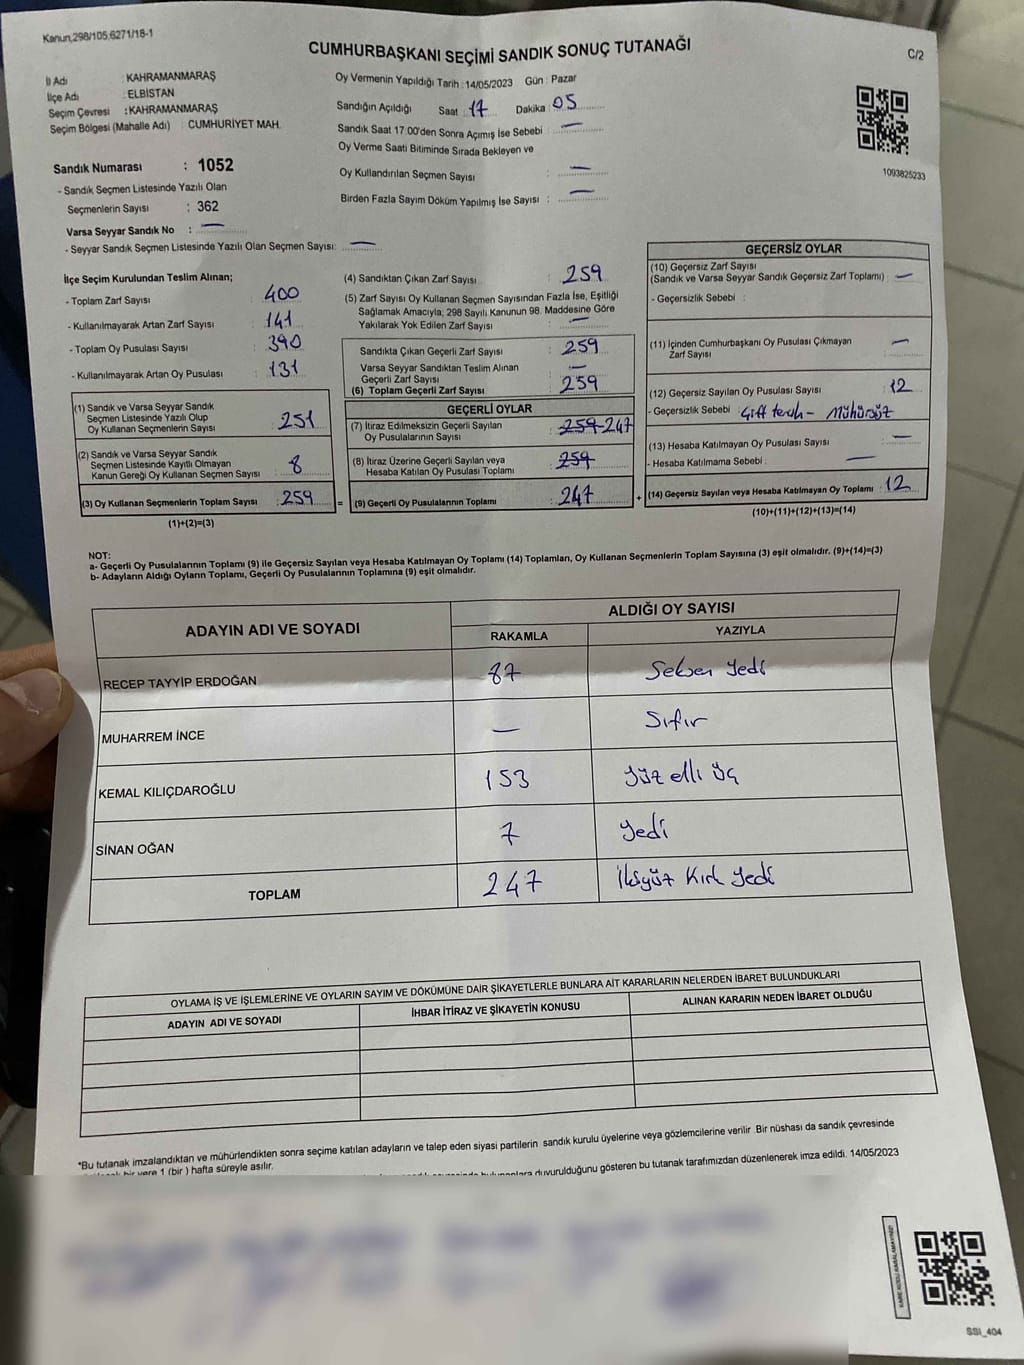 Kanun,298/105,6271/18-1
CUMHURBAŞKANI SEÇİMİ SANDIK SONUÇ TUTANAĞI
C/2
İl Adı : KAHRAMANMARAŞ
İlçe Adı : ELBİSTAN
Seçim Çevresi : KAHRAMANMARAŞ
Seçim Bölgesi (Mahalle Adı) : CUMHURİYET MAH.
Sandık Numarası : 1052
- Sandık Seçmen Listesinde Yazılı Olan
Seçmenlerin Sayısı : 362
Varsa Seyyar Sandık No : —
- Seyyar Sandık Seçmen Listesinde Yazılı Olan Seçmen Sayısı: —
Oy Vermenin Yapıldığı Tarih : 14/05/2023 Gün : Pazar
Sandığın Açıldığı Saat : 17 Dakika : 05
Sandık Saat 17:00'den Sonra Açımış İse Sebebi : —
Oy Verme Saati Bitiminde Sırada Bekleyen ve
Oy Kullandırılan Seçmen Sayısı : —
Birden Fazla Sayım Döküm Yapılmış İse Sayısı : —
1093825233
İlçe Seçim Kurulundan Teslim Alınan;
- Toplam Zarf Sayısı : 400
- Kullanılmayarak Artan Zarf Sayısı : 141
- Toplam Oy Pusulası Sayısı : 390
- Kullanılmayarak Artan Oy Pusulası : 131
(1) Sandık ve Varsa Seyyar Sandık
Seçmen Listesinde Yazılı Olup
Oy Kullanan Seçmenlerin Sayısı : 251
(2) Sandık ve Varsa Seyyar Sandık
Seçmen Listesinde Kayıtlı Olmayan
Kanun Gereği Oy Kullanan Seçmen Sayısı : 8
(3) Oy Kullanan Seçmenlerin Toplam Sayısı : 259
(1)+(2)=(3)
(4) Sandıktan Çıkan Zarf Sayısı : 259
(5) Zarf Sayısı Oy Kullanan Seçmen Sayısından Fazla İse, Eşitliği
Sağlamak Amacıyla; 298 Sayılı Kanunun 98. Maddesine Göre
Yakılarak Yok Edilen Zarf Sayısı : —
Sandıkta Çıkan Geçerli Zarf Sayısı : 259
Varsa Seyyar Sandıktan Teslim Alınan
Geçerli Zarf Sayısı : —
(6) Toplam Geçerli Zarf Sayısı : 259
GEÇERLİ OYLAR
(7) İtiraz Edilmeksizin Geçerli Sayılan
Oy Pusulalarının Sayısı : 259-247
(8) İtiraz Üzerine Geçerli Sayılan veya
Hesaba Katılan Oy Pusulası Toplamı : 259
= (9) Geçerli Oy Pusulalarının Toplamı : 247
GEÇERSİZ OYLAR
(10) Geçersiz Zarf Sayısı
(Sandık ve Varsa Seyyar Sandık Geçersiz Zarf Toplamı) : —
- Geçersizlik Sebebi :
(11) İçinden Cumhurbaşkanı Oy Pusulası Çıkmayan
Zarf Sayısı : —
(12) Geçersiz Sayılan Oy Pusulası Sayısı : 12
- Geçersizlik Sebebi : Çift tercih - Mühürsüz
(13) Hesaba Katılmayan Oy Pusulası Sayısı : —
- Hesaba Katılmama Sebebi : —
+ (14) Geçersiz Sayılan veya Hesaba Katılmayan Oy Toplamı : 12
(10)+(11)+(12)+(13)=(14)
NOT:
a- Geçerli Oy Pusulalarının Toplamı (9) ile Geçersiz Sayılan veya Hesaba Katılmayan Oy Toplamı (14) Toplamları, Oy Kullanan Seçmenlerin Toplam Sayısına (3) eşit olmalıdır. (9)+(14)=(3)
b- Adayların Aldığı Oyların Toplamı, Geçerli Oy Pusulalarının Toplamına (9) eşit olmalıdır.
ADAYIN ADI VE SOYADI
ALDIĞI OY SAYISI
RAKAMLA YAZIYLA
RECEP TAYYİP ERDOĞAN 87 Seksen Yedi
MUHARREM İNCE — Sıfır
KEMAL KILIÇDAROĞLU 153 Yüz elli üç
SİNAN OĞAN 7 Yedi
TOPLAM 247 İkiyüz Kırk Yedi
OYLAMA İŞ VE İŞLEMLERİNE VE OYLARIN SAYIM VE DÖKÜMÜNE DAİR ŞİKAYETLERLE BUNLARA AİT KARARLARIN NELERDEN İBARET BULUNDUKLARI
ADAYIN ADI VE SOYADI İHBAR İTİRAZ VE ŞİKAYETİN KONUSU ALINAN KARARIN NEDEN İBARET OLDUĞU
*Bu tutanak imzalandıktan ve mühürlendikten sonra seçime katılan adayların ve talep eden siyasi partilerin sandık kurulu üyelerine veya gözlemcilerine verilir .Bir nüshası da sandık çevresinde
bir yere 1 (bir ) hafta süreyle asılır.
duyurulduğunu gösteren bu tutanak tarafımızdan düzenlenerek imza edildi. 14/05/2023
KARE KODU KARALAMAYINIZ!
SSI_404